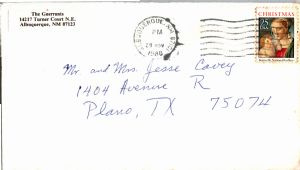 The Guerrants
14217 Turner Court N.E.
Albuquerque, NM 87123
ALBUQUERQUE, NM
PM
29 NOV
1986
CHRISTMAS
Mr. and Mrs. Jesse Cavey
1404 Avenue R
Plano, TX 75074